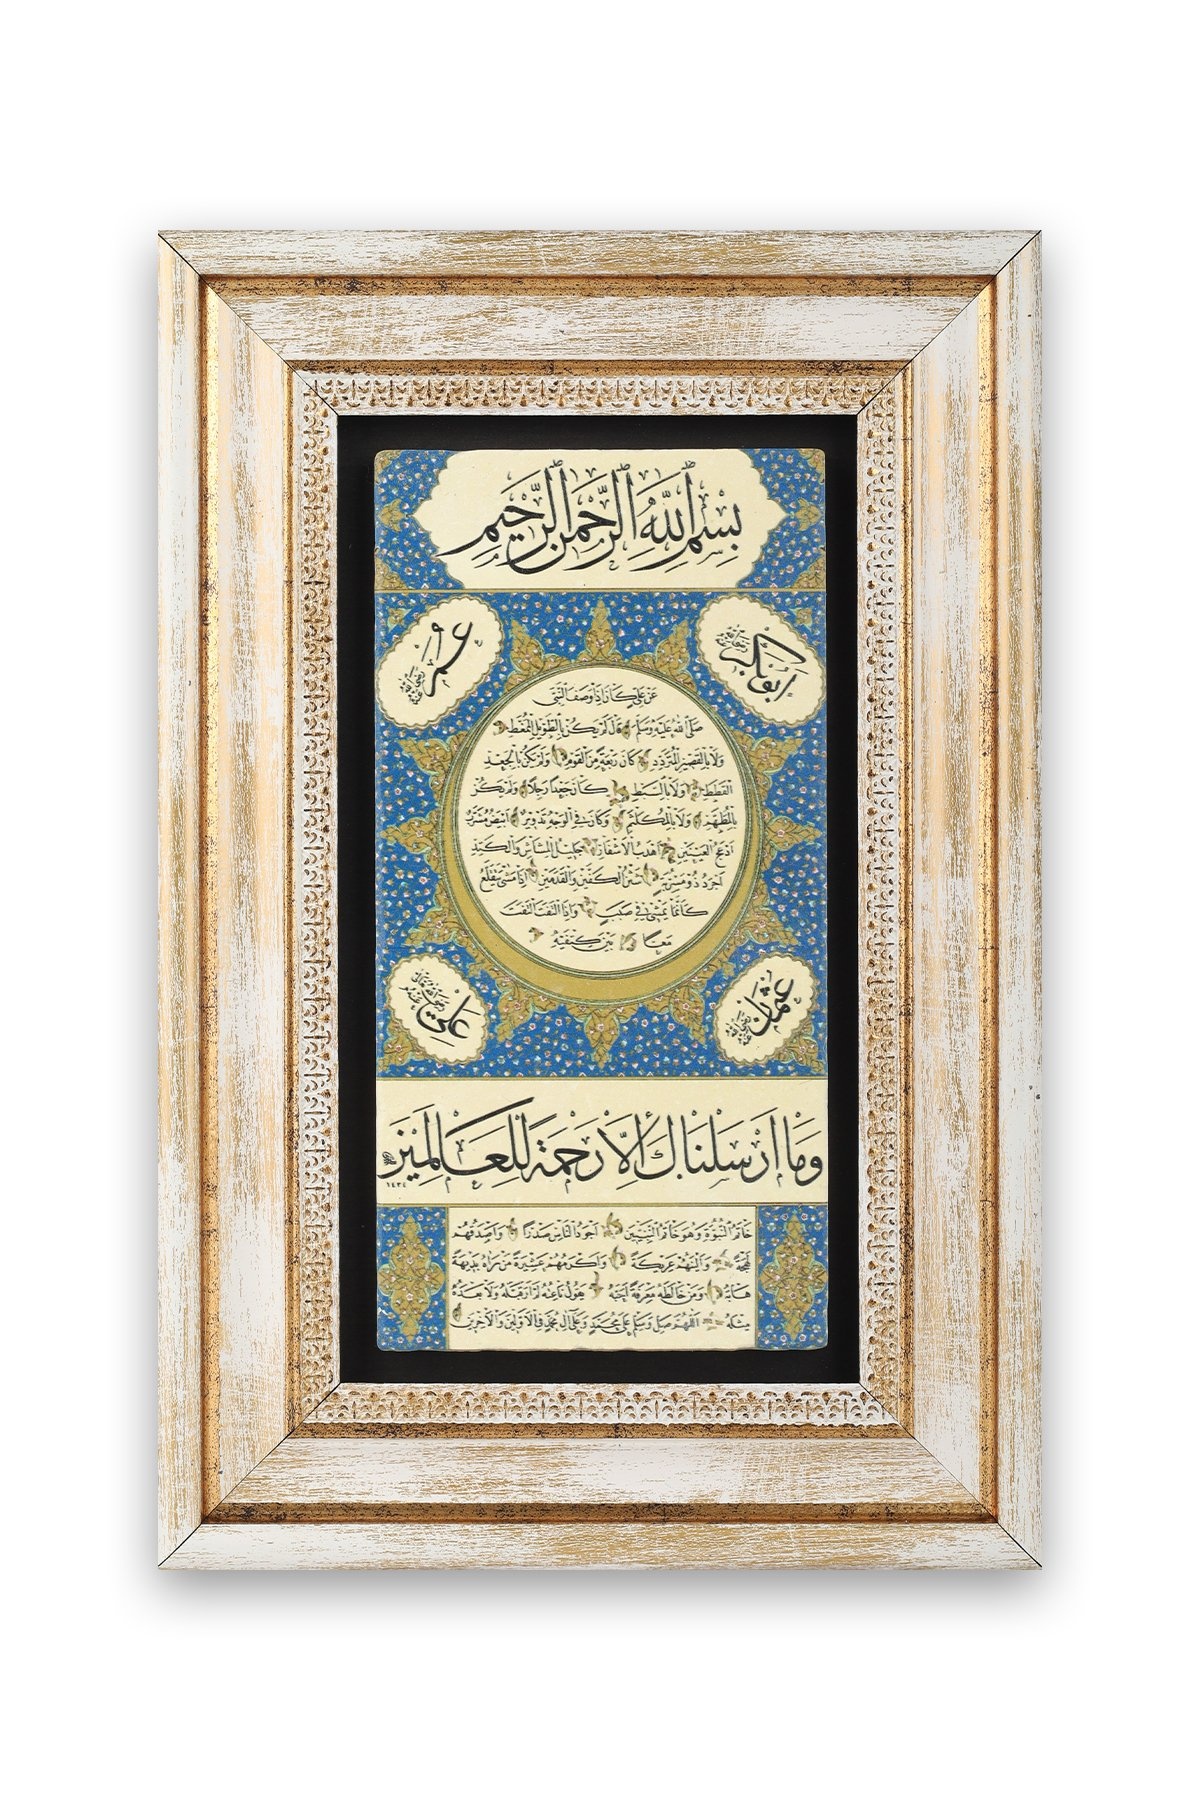 بِسْمِ اللّٰهِ الرَّحْمٰنِ الرَّحِيمِ
ابُوبَكْر رضى الله تعالى عنه
عُمَر رضى الله تعالى عنه
عَنْ عَلِيٍّ كَانَ اِذَا وَصَفَ النَّبِيَّ
صَلَّى اللّٰهُ عَلَيْهِ وَسَلَّمَ قَالَ لَمْ يَكُنْ بِالطَّوِيلِ الْمُمَّغِطِ
وَلَا بِالْقَصِيرِ الْمُتَرَدِّدِ كَانَ رَبْعَةً مِنَ الْقَوْمِ وَلَمْ يَكُنْ بِالْجَعْدِ
الْقَطِطِ وَلَا بِالسَّبِطِ كَانَ جَعْدًا رَجِلًا وَلَمْ يَكُنْ
بِالْمُطَهَّمِ وَلَا بِالْمُكَلْثَمِ وَكَانَ فِي الْوَجْهِ تَدْوِيرٌ اَبْيَضُ مُشْرَبٌ
اَدْعَجُ الْعَيْنَيْنِ اَهْدَبُ الْاَشْفَارِ جَلِيلُ الْمُشَاشِ وَالْكَتَدِ
اَجْرَدُ ذُو مَسْرُبَةٍ شَثْنُ الْكَفَّيْنِ وَالْقَدَمَيْنِ اِذَا مَشَى يَتَقَلَّعُ
كَاَنَّمَا يَمْشِي فِي صَبَبٍ وَاِذَا الْتَفَتَ الْتَفَتَ
مَعًا بَيْنَ كَتِفَيْهِ
عُثْمَان رضى الله تعالى عنه
عَلِيّ رضى الله تعالى عنه
وَمَا اَرْسَلْنَاكَ اِلَّا رَحْمَةً لِلْعَالَمِينَ
١٤٣٤
خَاتَمُ النُّبُوَّةِ وَهُوَ خَاتَمُ النَّبِيِّينَ اَجْوَدُ النَّاسِ صَدْرًا وَاَصْدَقُهُمْ
لَهْجَةً وَاَلْيَنُهُمْ عَرِيكَةً وَاَكْرَمُهُمْ عَشِيرَةً مَنْ رَآهُ بَدِيهَةً
هَابَهُ وَمَنْ خَالَطَهُ مَعْرِفَةً اَحَبَّهُ يَقُولُ نَاعِتُهُ لَمْ اَرَ قَبْلَهُ وَلَا بَعْدَهُ
مِثْلَهُ اَللّٰهُمَّ صَلِّ وَسَلِّمْ عَلَى مُحَمَّدٍ وَعَلَى آلِ مُحَمَّدٍ فِي الْاَوَّلِينَ وَالْآخِرِينَ